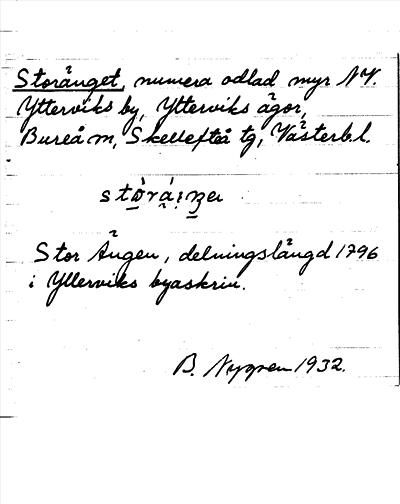 Storänget, numera odlad myr NV.
Ytterviks by, Ytterviks ägor,
Bureå m, Skellefteå tg, Västerb.l.
Stor Ängen, delningslängd 1796
i Ytterviks byaskrin.
B. Nygren 1932.